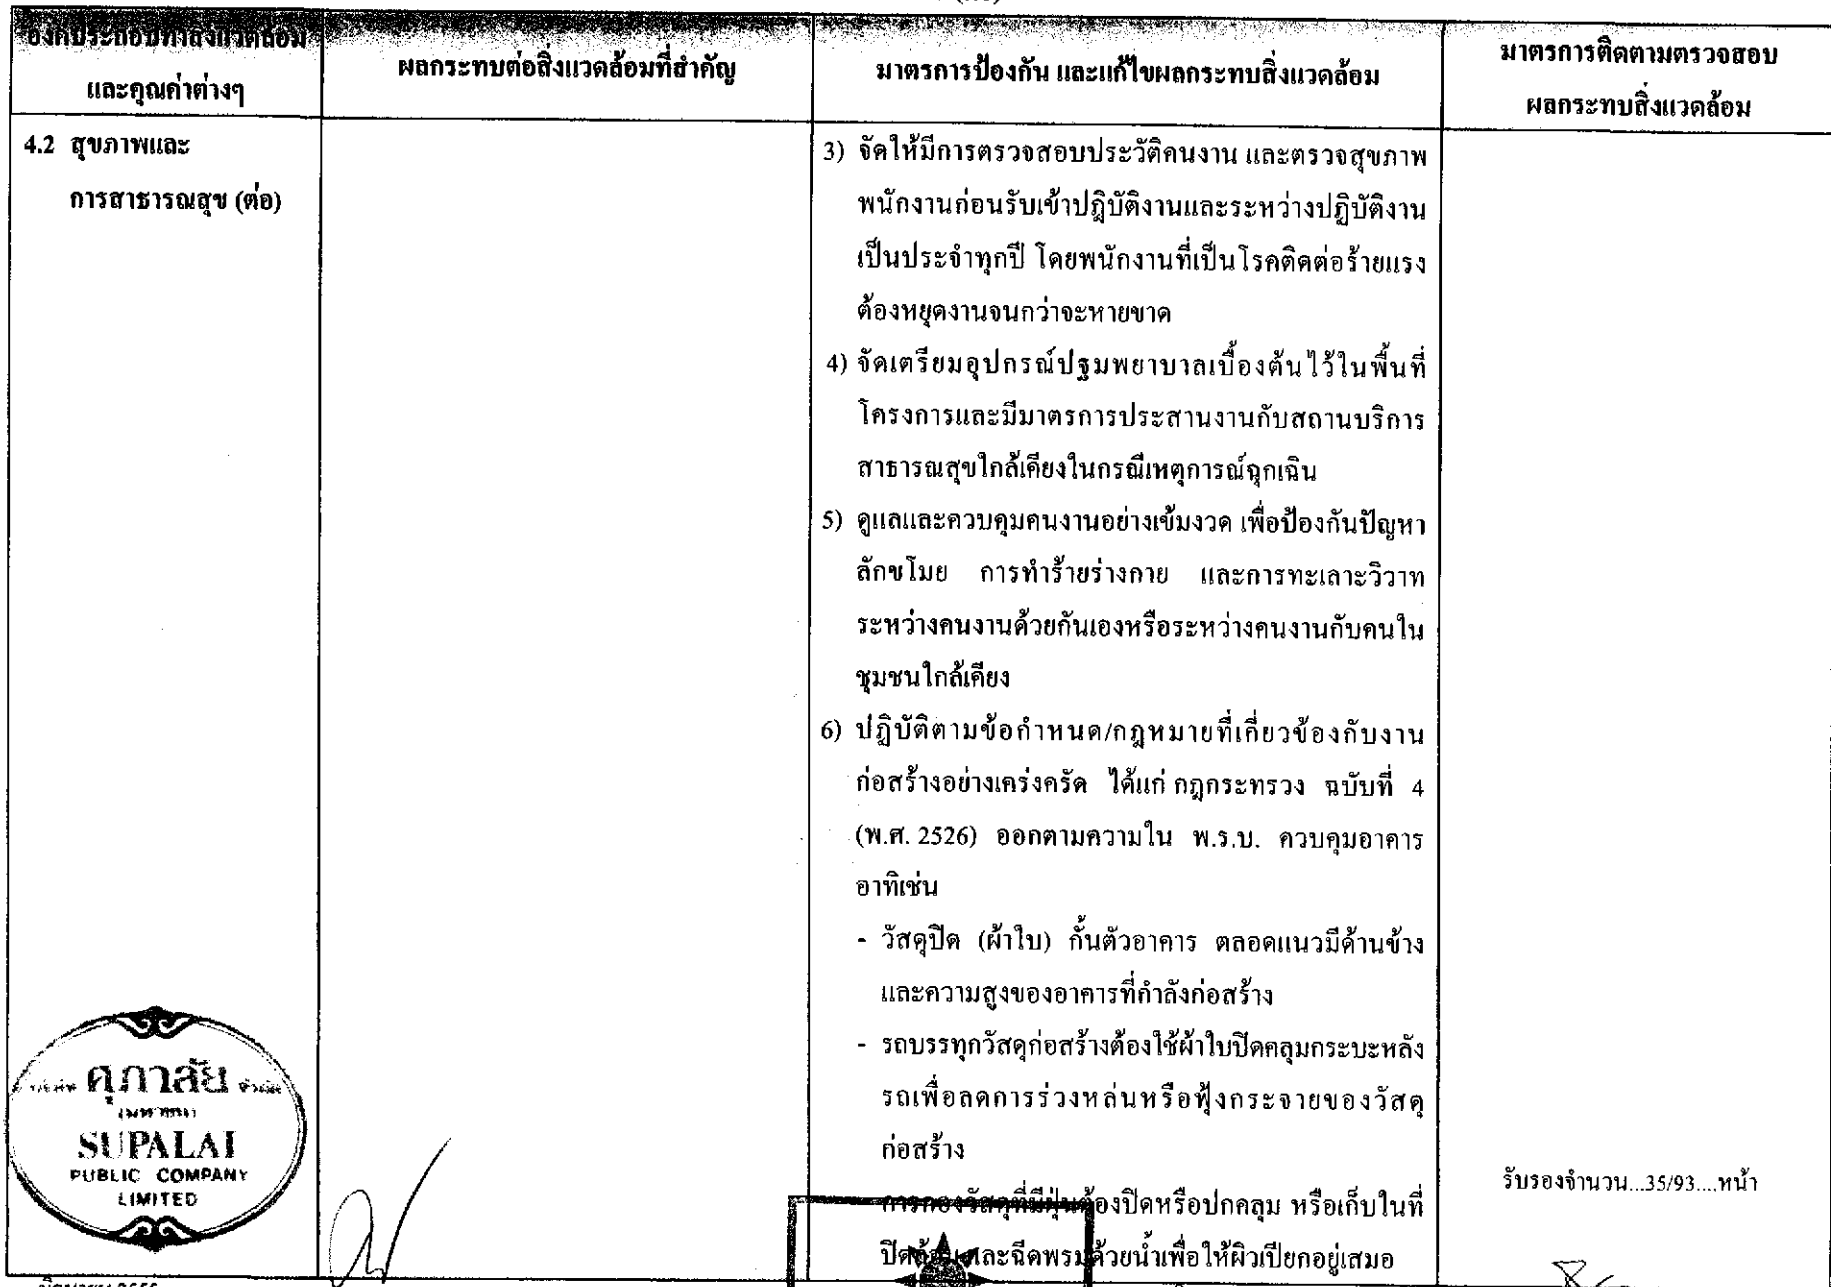 องค์ประกอบทางสิ่งแวดล้อม
และคุณค่าต่างๆ
ผลกระทบต่อสิ่งแวดล้อมที่สำคัญ
มาตรการป้องกัน และแก้ไขผลกระทบสิ่งแวดล้อม
มาตรการติดตามตรวจสอบ
ผลกระทบสิ่งแวดล้อม
4.2 สุขภาพและ
การสาธารณสุข (ต่อ)
3) จัดให้มีการตรวจสอบประวัติคนงาน และตรวจสุขภาพ
พนักงานก่อนรับเข้าปฏิบัติงานและระหว่างปฏิบัติงาน
เป็นประจำทุกปี โดยพนักงานที่เป็นโรคติดต่อร้ายแรง
ต้องหยุดงานจนกว่าจะหายขาด
4) จัดเตรียมอุปกรณ์ปฐมพยาบาลเบื้องต้นไว้ในพื้นที่
โครงการและมีมาตรการประสานงานกับสถานบริการ
สาธารณสุขใกล้เคียงในกรณีเหตุการณ์ฉุกเฉิน
5) ดูแลและควบคุมคนงานอย่างเข้มงวด เพื่อป้องกันปัญหา
ลักขโมย การทำร้ายร่างกาย และการทะเลาะวิวาท
ระหว่างคนงานด้วยกันเองหรือระหว่างคนงานกับคนใน
ชุมชนใกล้เคียง
6) ปฏิบัติตามข้อกำหนด/กฎหมายที่เกี่ยวข้องกับงาน
ก่อสร้างอย่างเคร่งครัด ได้แก่ กฎกระทรวง ฉบับที่ 4
(พ.ศ. 2526) ออกตามความใน พ.ร.บ. ควบคุมอาคาร
อาทิเช่น
- วัสดุปิด (ผ้าใบ) กั้นตัวอาคาร ตลอดแนวมีด้านข้าง
และความสูงของอาคารที่กำลังก่อสร้าง
- รถบรรทุกวัสดุก่อสร้างต้องใช้ผ้าใบปิดคลุมกระบะหลัง
รถเพื่อลดการร่วงหล่นหรือฟุ้งกระจายของวัสดุ
ก่อสร้าง
การกองวัสดุที่มีฝุ่นต้องปิดหรือปกคลุม หรือเก็บในที่
ปิดล้อมและฉีดพรมด้วยน้ำเพื่อให้ผิวเปียกอยู่เสมอ
ศุภาลัย
(มหาชน)
SUPALAI
PUBLIC COMPANY
LIMITED
รับรองจำนวน...35/93....หน้า